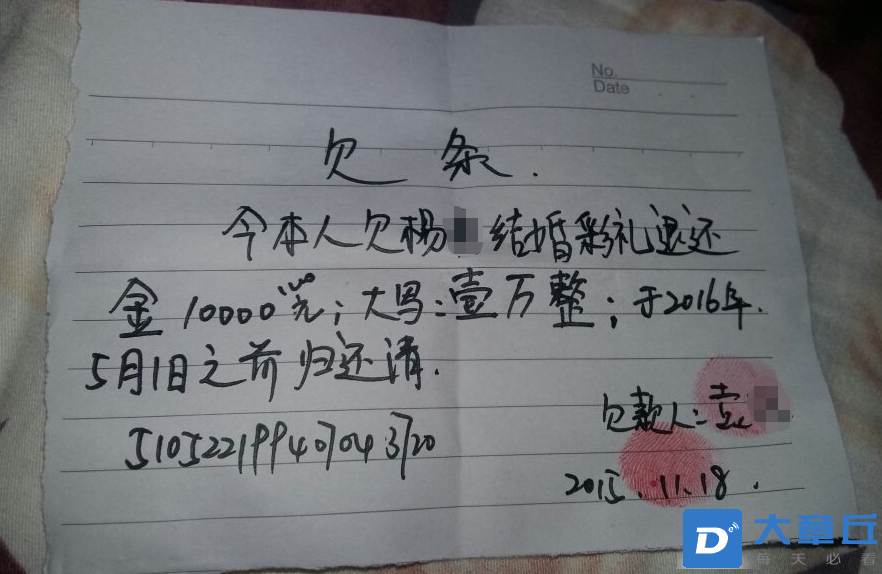 No.
Date
欠条.
今本人欠杨 结婚彩礼退还
金10000元;大写:壹万整;于2016年.
5月1日之前归还清.
欠款人:
510522199407043720
2015.11.18.
大章丘
每天必看